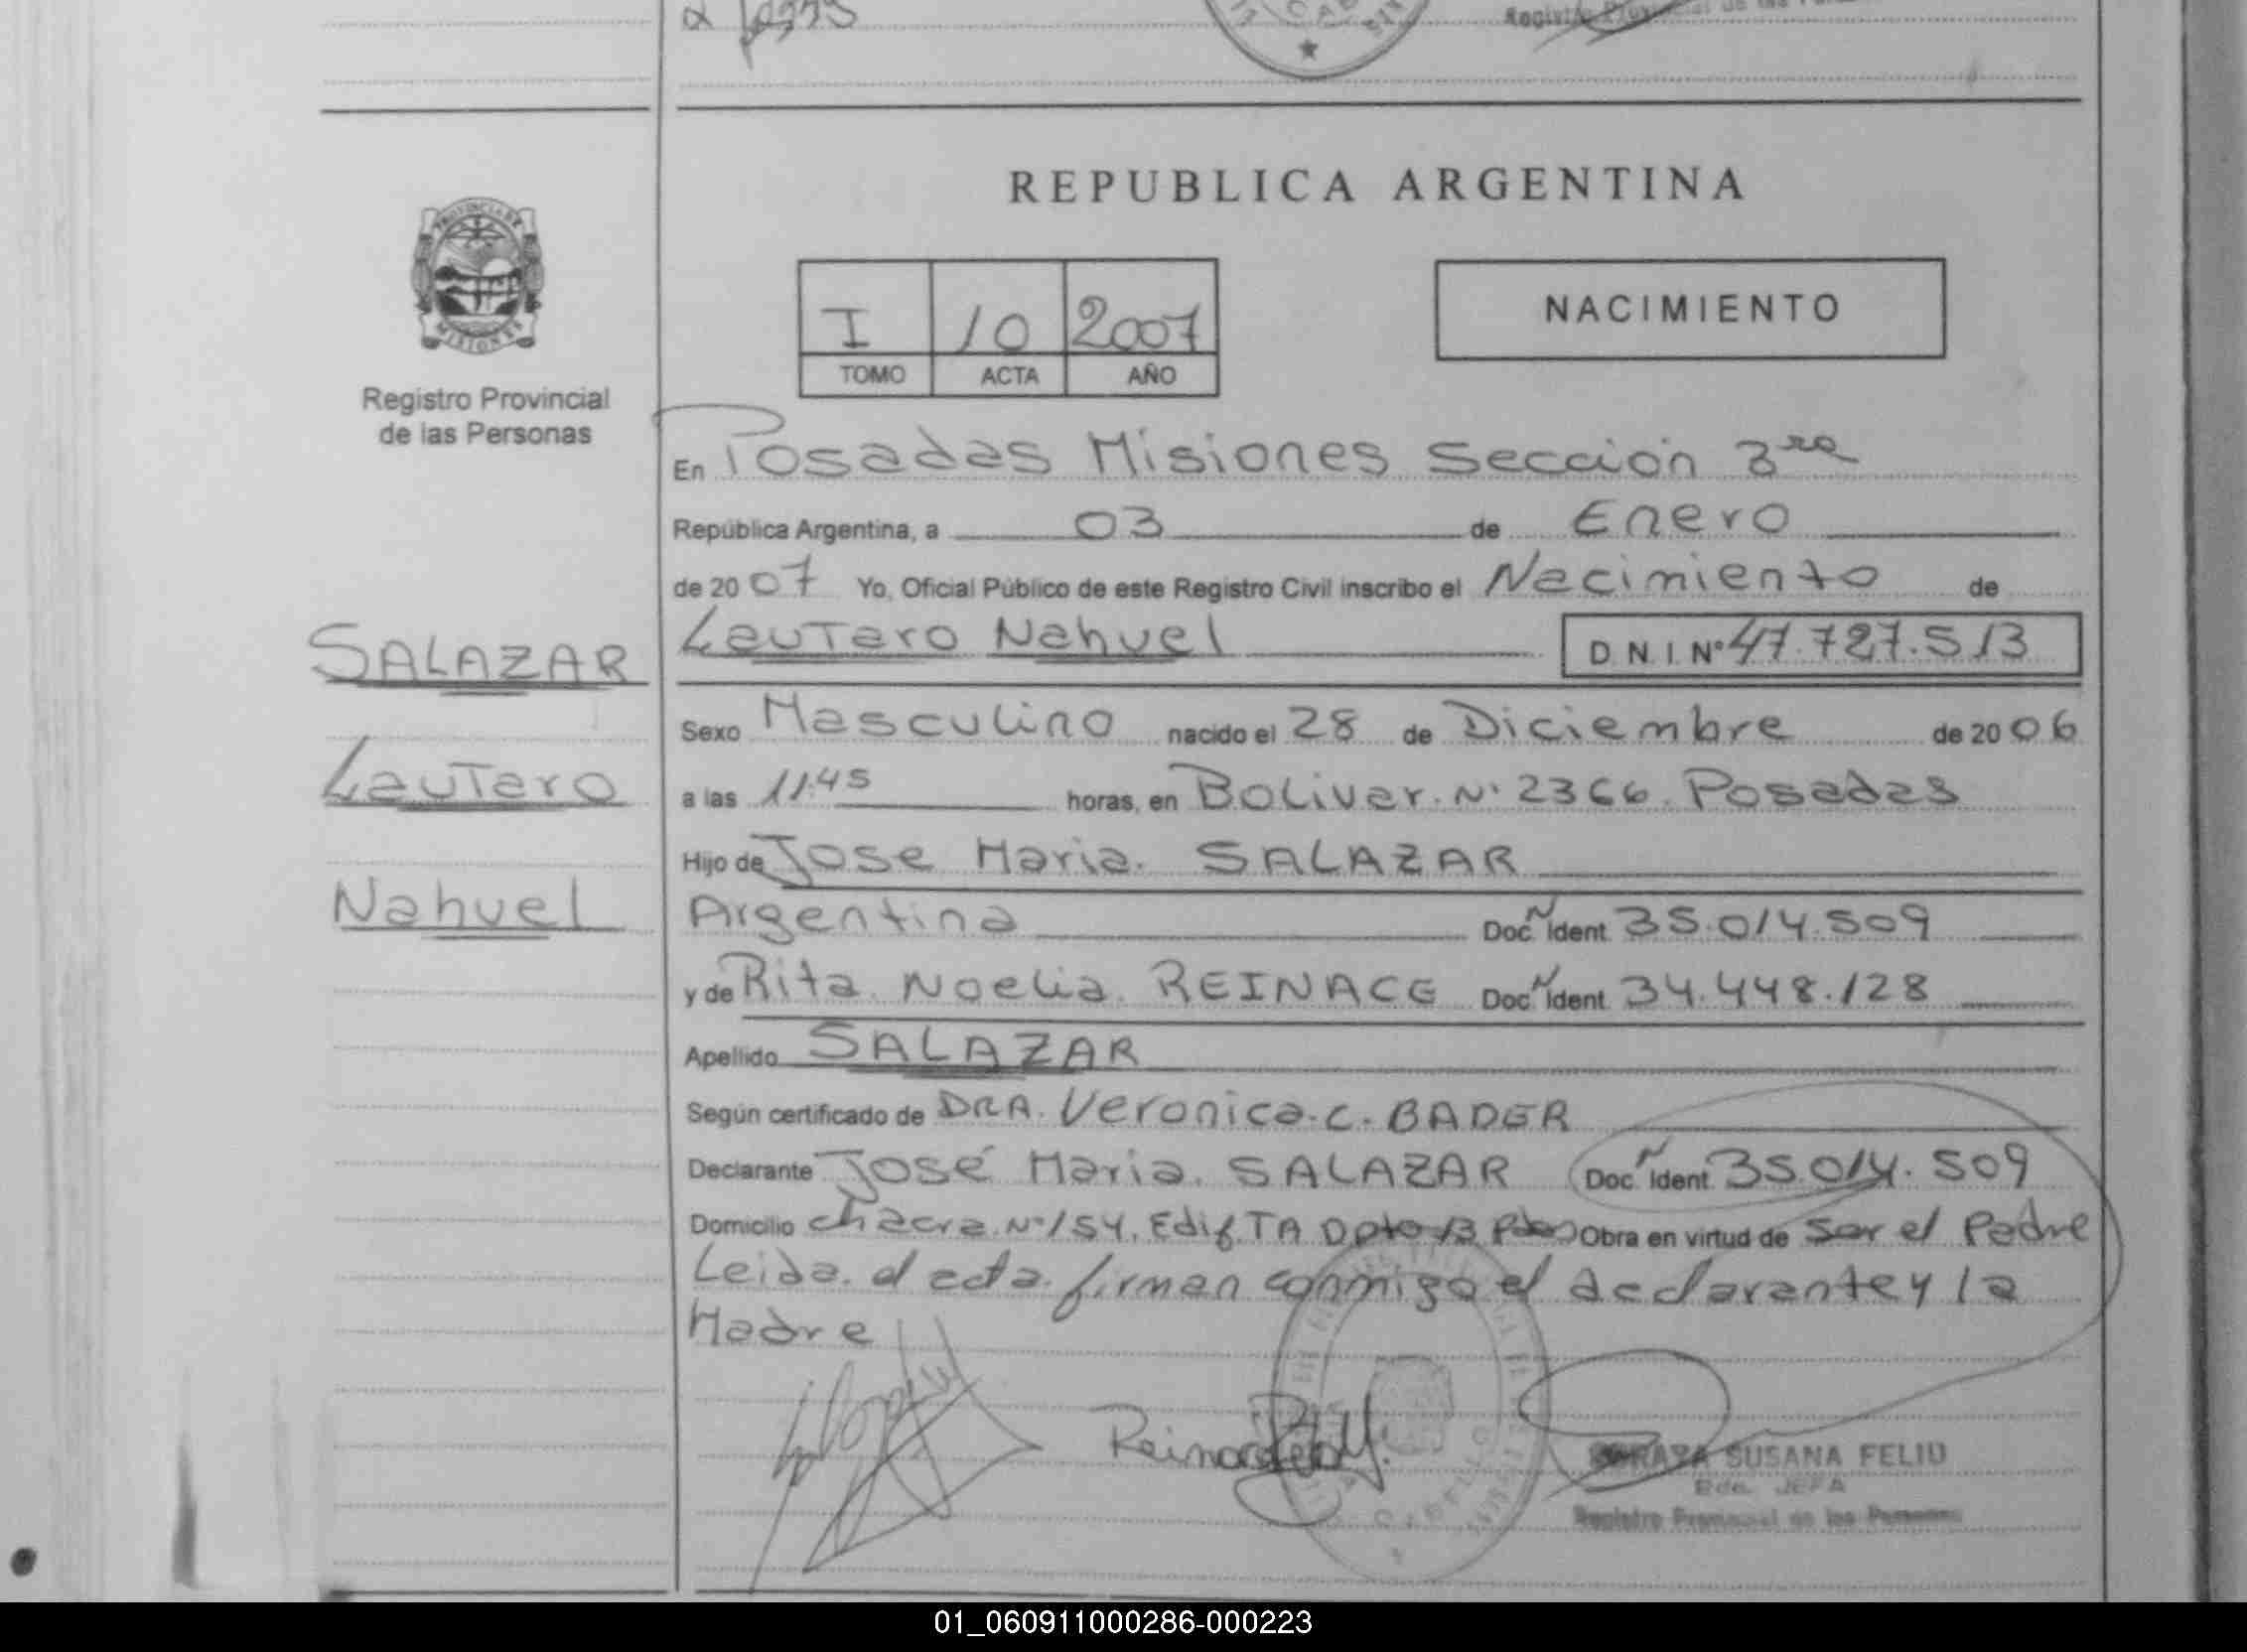 REPUBLICA ARGENTINA
PROVINCIA DE
MISIONES
Registro Provincial
de las Personas
I 10 2007
TOMO ACTA AÑO
NACIMIENTO
En Posadas Misiones Sección 3ra
República Argentina, a 03 de Enero
de 2007 Yo, Oficial Público de este Registro Civil inscribo el Nacimiento de
Lautaro Nahuel D.N.I. Nº 47.727.513
SALAZAR
Lautaro
Nahuel
Sexo Masculino nacido el 28 de Diciembre de 2006
a las 11:45 horas, en Bolivar. Nº 2366. Posadas
Hijo de Jose Maria. SALAZAR
Argentina Doc. N Ident. 35.014.509
y de Rita. Noelia. REINACE Doc. N Ident. 34.448.128
Apellido SALAZAR
Según certificado de DRA. Veronica. C. BADER
Declarante José Maria. SALAZAR Doc. N Ident. 35.014.509
Domicilio chacra. Nº 154. Edif. TA Dpto 13 Pdas Obra en virtud de Ser el Padre
Leida. el acta. firman conmigo el declarante y la
Madre
SUSANA FELIU
JEFA
Registro Provincial de las Personas
01_060911000286-000223